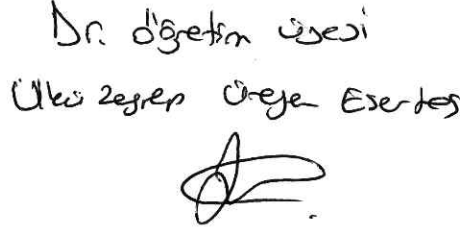 Dr. öğretim üyesi
Ülkü Zeynep Üreyen Esertaş